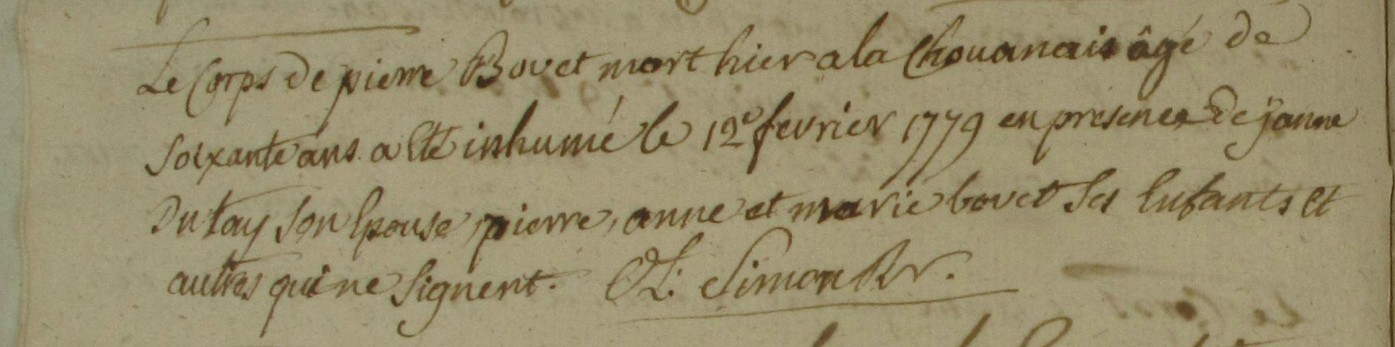 Le Corps de pierre Bovet mort hier a la Chouanais âgé de
soixante ans a Eté inhumé le 12e fevrier 1779 en presence de janne
Dutay son Epouse, pierre, anne et marie bovet ses Enfants Et
autres qui ne signent. Simon Rr.